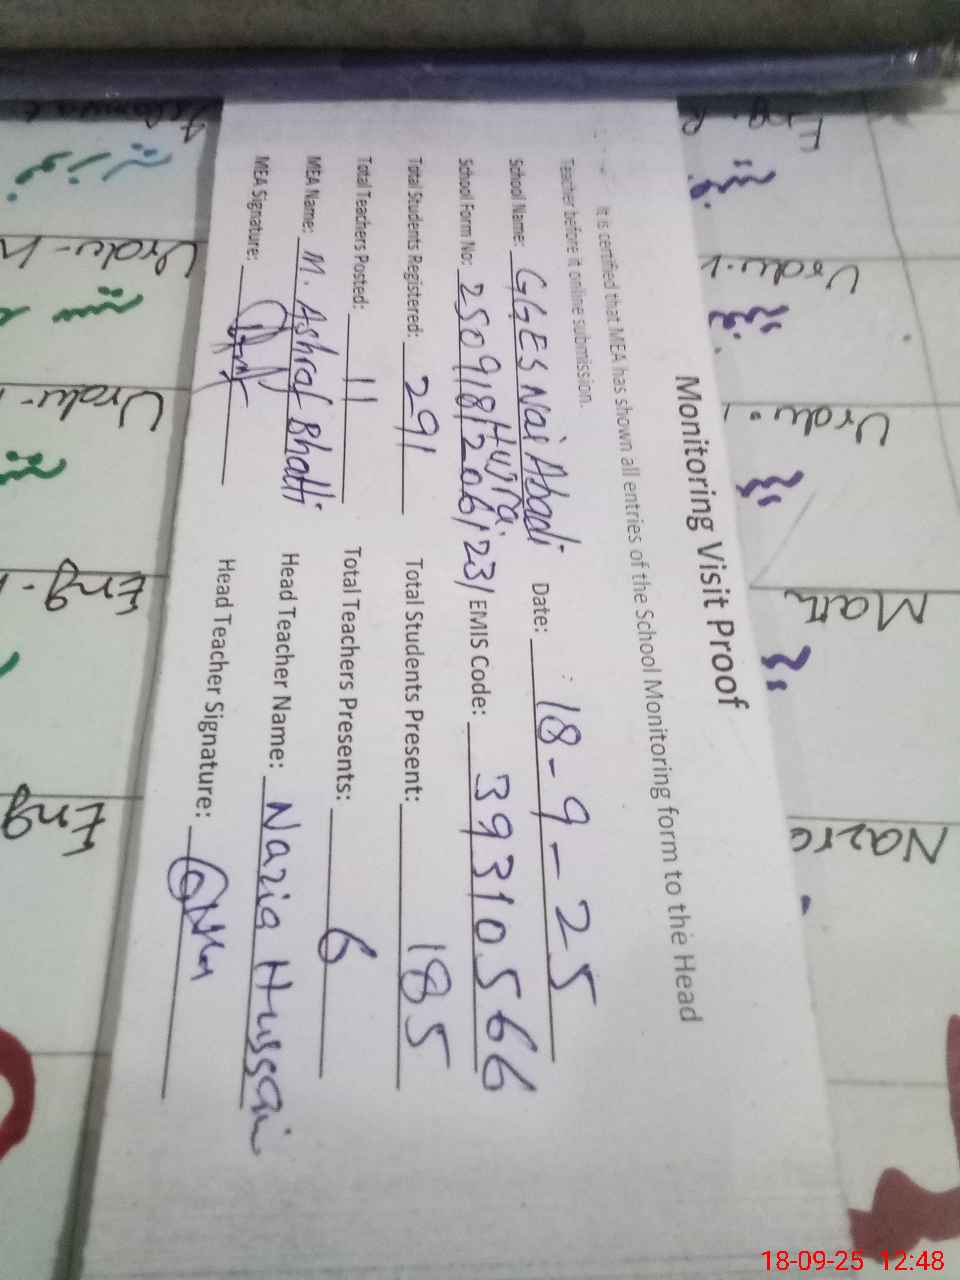 Monitoring Visit Proof
It is certified that MEA has shown all entries of the School Monitoring form to the Head
Teacher before it online submission.
School Name: GGES Nai Abadi Hujra. Date: 18-9-25
School Form No: 250918/206/23/ EMIS Code: 39310566
Total Students Registered: 291 Total Students Present: 185
Total Teachers Posted: 11 Total Teachers Presents: 6
MEA Name: M. Ashraf Bhatti Head Teacher Name: Nazia Hussain
MEA Signature: Head Teacher Signature:
Urdu
Urdu
Math
Urdu
Urdu
Eng
Eng
18-09-25 12:48